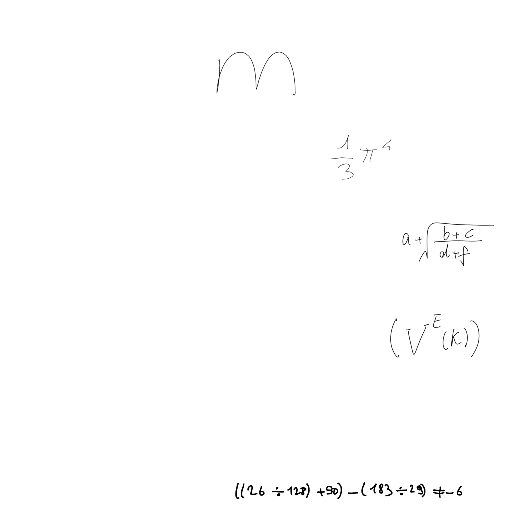 m
\frac{1}{3} \pi^4
a + \sqrt{\frac{b+c}{d+f}}
(V^E(K))
((26 ÷ 128) + 90) - (183 ÷ 29) ≠ -6